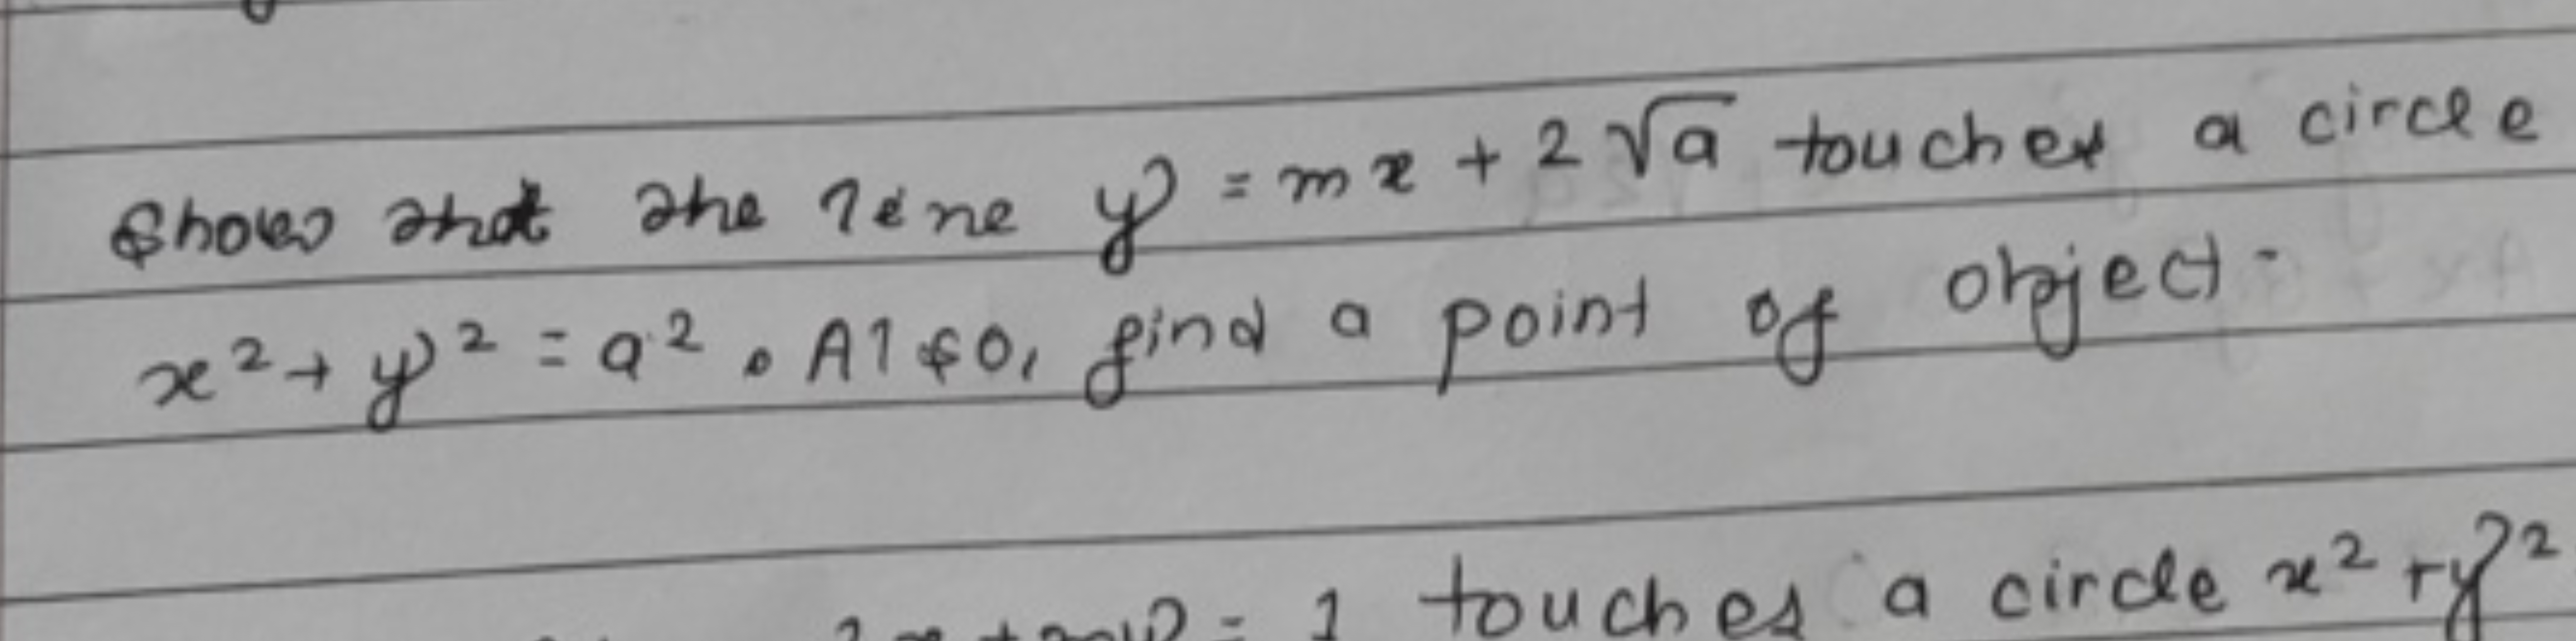 Show that the line y = mx + 2√a touches a circle
x² + y² = a². Also, find a point of object.
touches a circle x² + y²